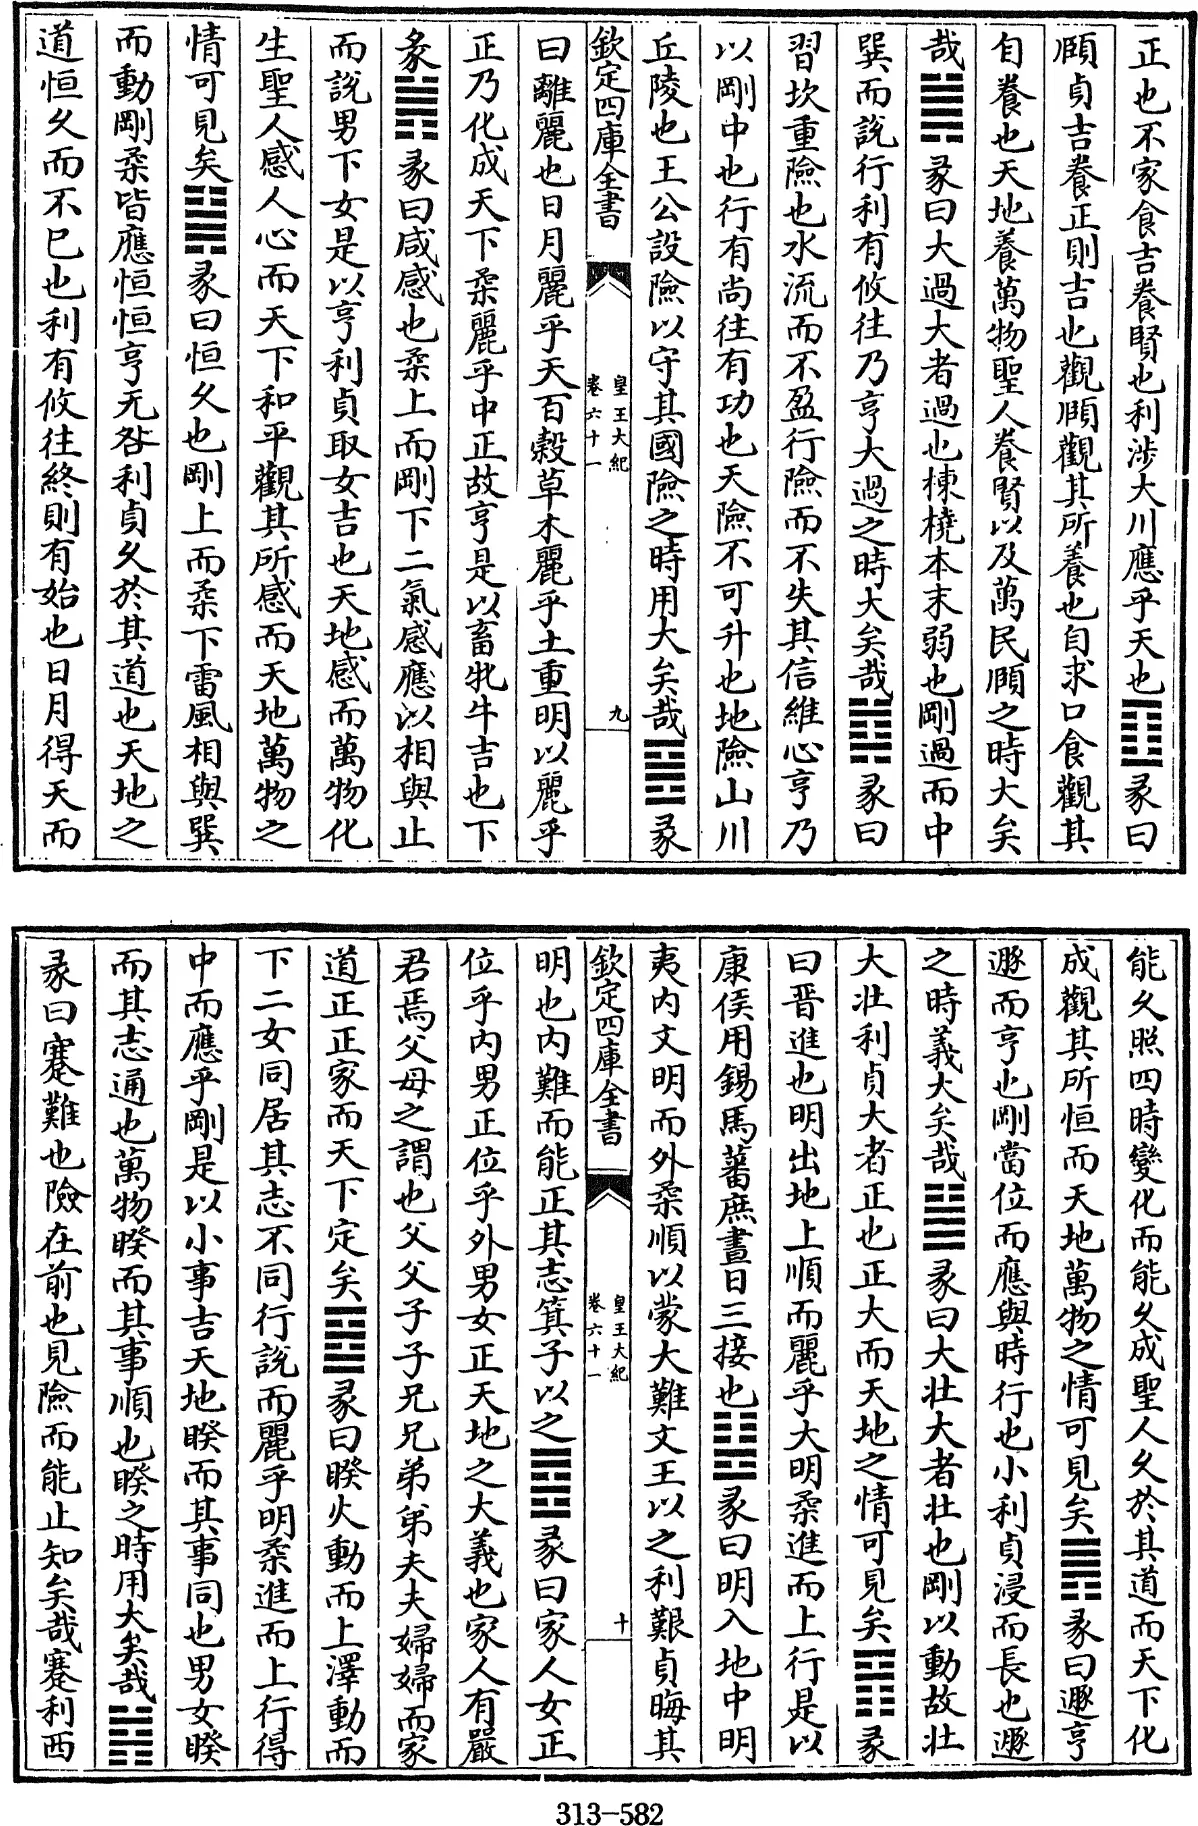 正也不家食吉養賢也利涉大川應乎天也䷚彖曰
頤貞吉養正則吉也觀頤觀其所養也自求口食觀其
自養也天地養萬物聖人養賢以及萬民頤之時大矣
哉䷛彖曰大過大者過也棟橈本末弱也剛過而中
巽而說行利有攸往乃亨大過之時大矣哉䷜彖曰
習坎重險也水流而不盈行險而不失其信維心亨乃
以剛中也行有尚往有功也天險不可升也地險山川
丘陵也王公設險以守其國險之時用大矣哉䷝彖
欽定四庫全書
皇王大紀
卷六十一
九
曰離麗也日月麗乎天百穀草木麗乎土重明以麗乎
正乃化成天下柔麗乎中正故亨是以畜牝牛吉也下
彖䷞彖曰咸感也柔上而剛下二氣感應以相與止
而說男下女是以亨利貞取女吉也天地感而萬物化
生聖人感人心而天下和平觀其所感而天地萬物之
情可見矣䷟彖曰恒久也剛上而柔下雷風相與巽
而動剛柔皆應恒恒亨无咎利貞久於其道也天地之
道恒久而不已也利有攸往終則有始也日月得天而
能久照四時變化而能久成聖人久於其道而天下化
成觀其所恒而天地萬物之情可見矣䷠彖曰遯亨
遯而亨也剛當位而應與時行也小利貞浸而長也遯
之時義大矣哉䷡彖曰大壯大者壯也剛以動故壯
大壯利貞大者正也正大而天地之情可見矣䷢彖
曰晉進也明出地上順而麗乎大明柔進而上行是以
康侯用錫馬蕃庶晝日三接也䷣彖曰明入地中明
夷内文明而外柔順以蒙大難文王以之利艱貞晦其
欽定四庫全書
皇王大紀
卷六十一
十
明也内難而能正其志箕子以之䷤彖曰家人女正
位乎内男正位乎外男女正天地之大義也家人有嚴
君焉父母之謂也父父子子兄兄弟弟夫夫婦婦而家
道正正家而天下定矣䷥彖曰睽火動而上澤動而
下二女同居其志不同行說而麗乎明柔進而上行得
中而應乎剛是以小事吉天地睽而其事同也男女睽
而其志通也萬物睽而其事順也睽之時用大矣哉䷦
彖曰蹇難也險在前也見險而能止知矣哉蹇利西
313-582